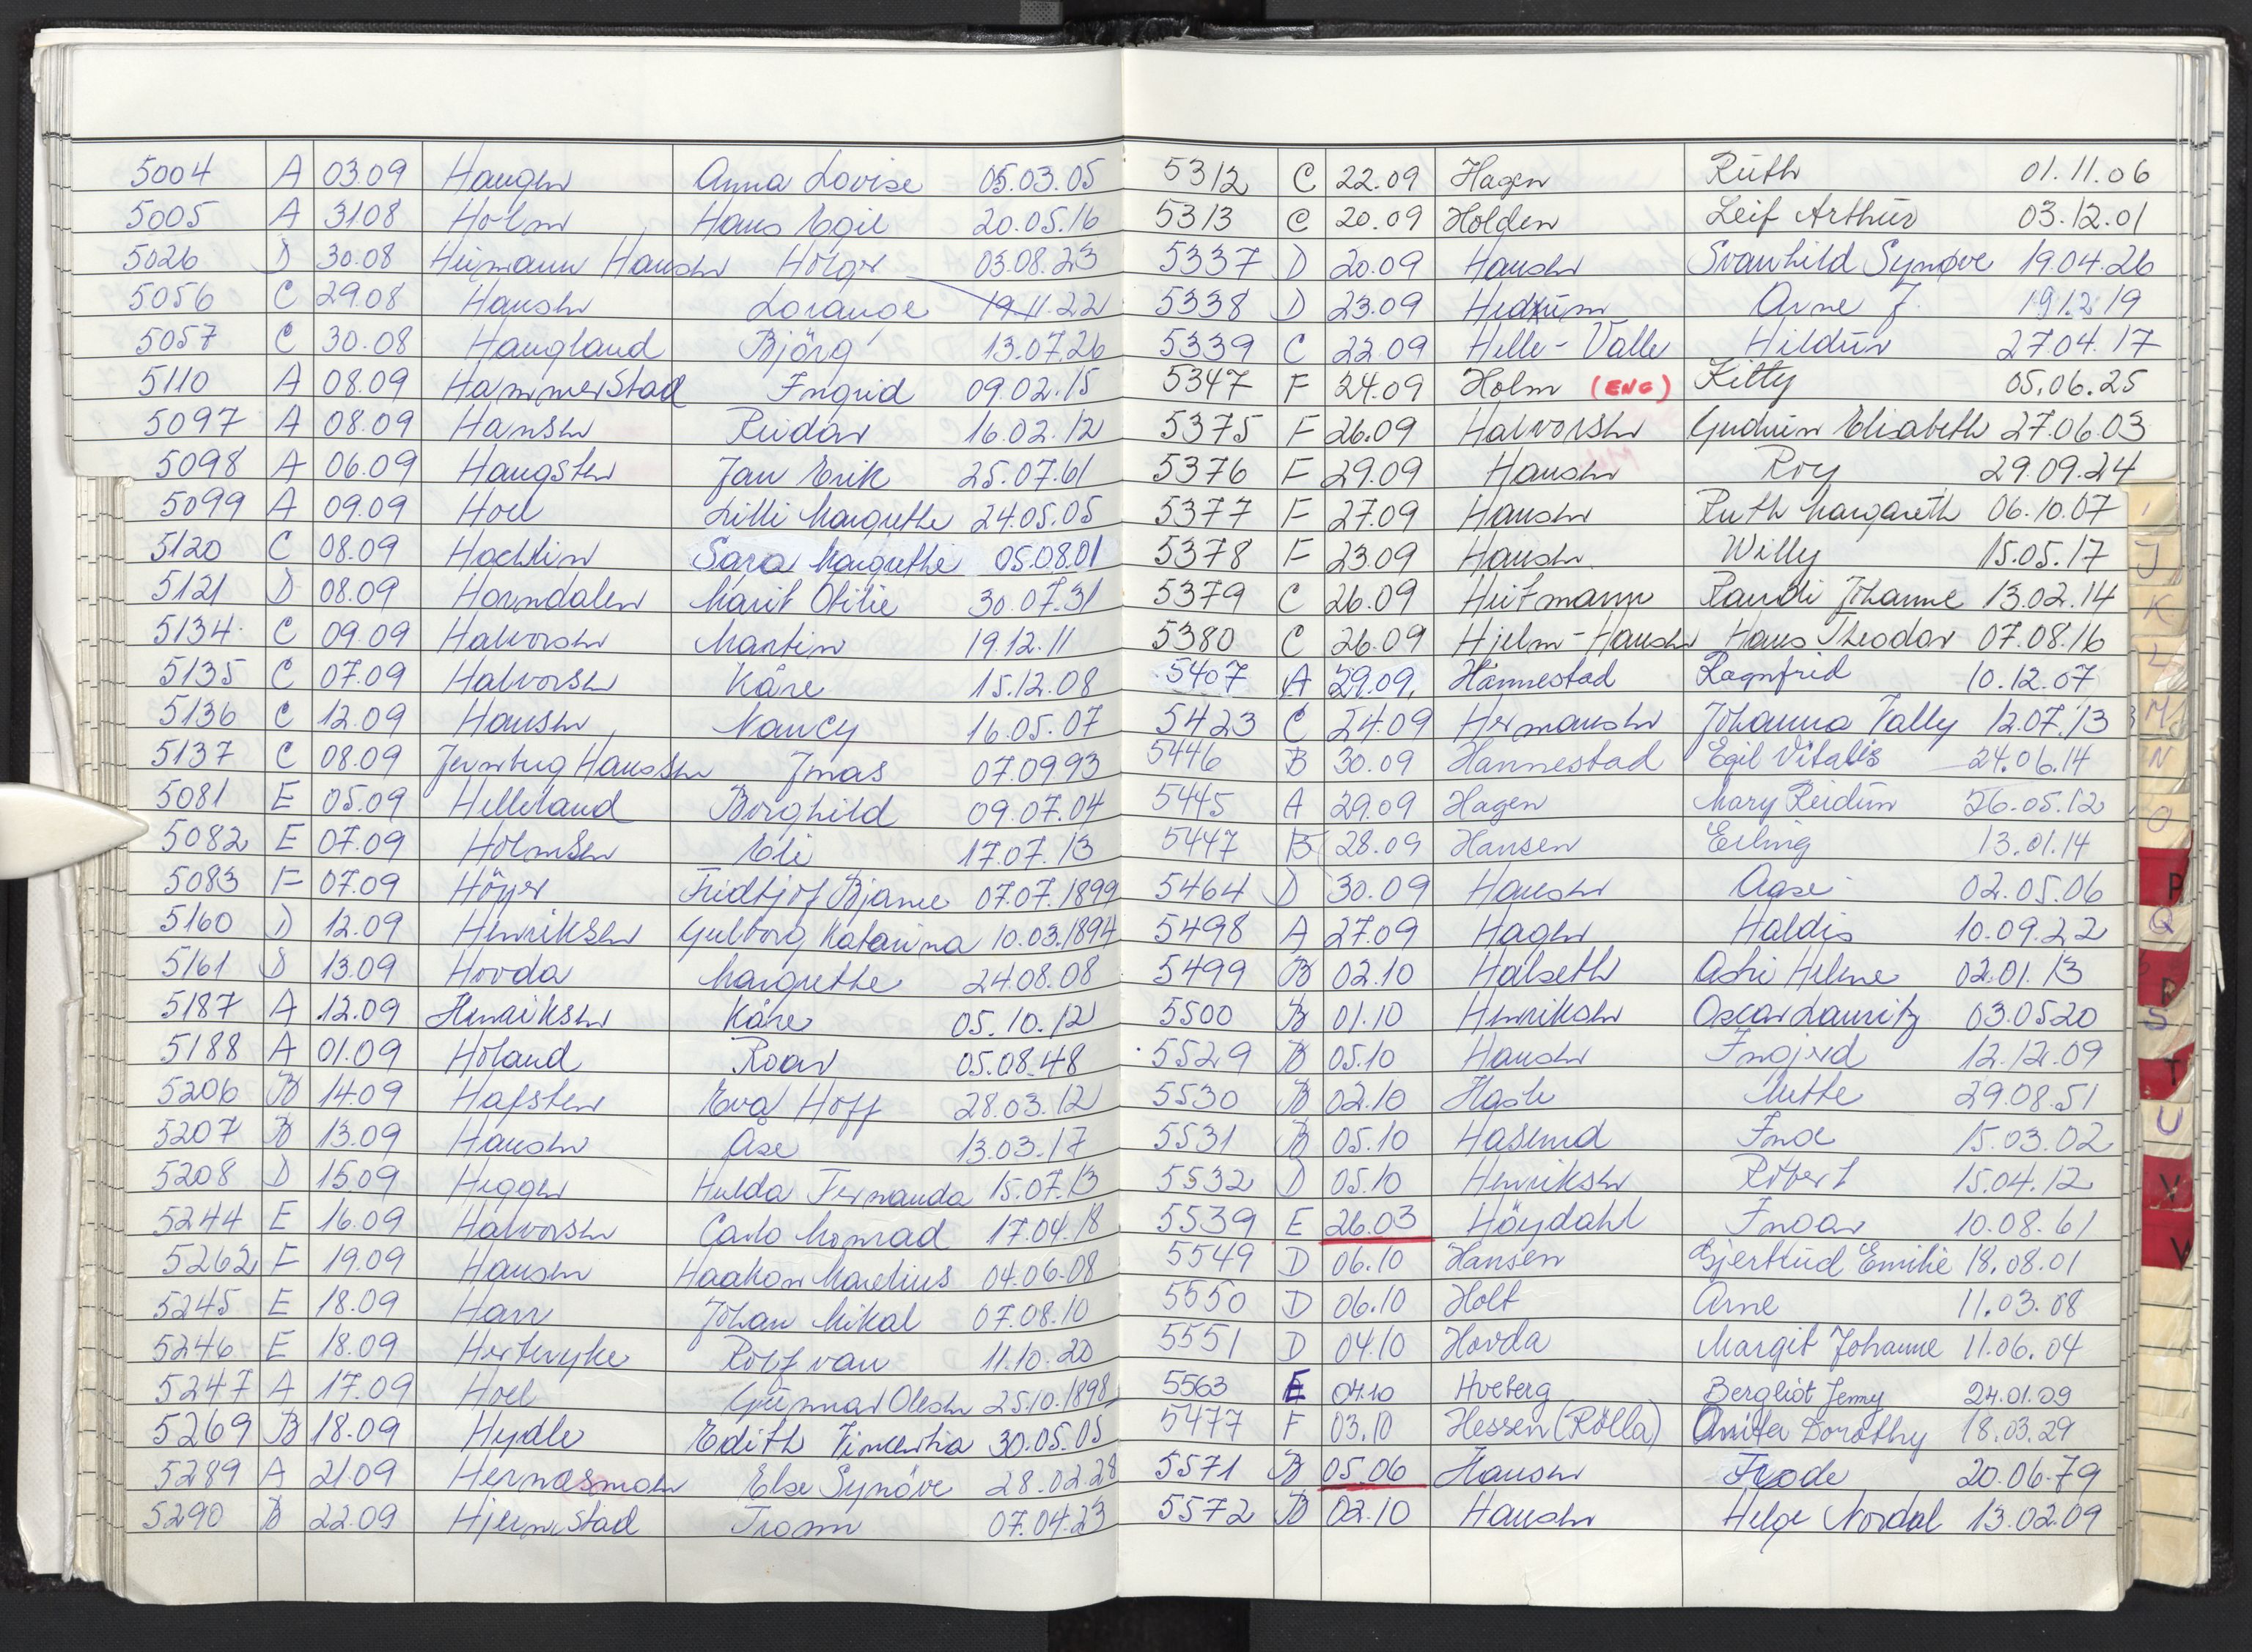 5004 A 03.09 Haugen Anna Lovise 05.03.05
5005 A 31.08 Holm Hans Egil 20.05.16
5026 D 30.08 Heimann Hansen Holger 03.08.23
5056 C 29.08 Hansen Lorange 19.11.22
5057 C 30.08 Haugland Björg 13.07.26
5110 A 08.09 Hammerstad Ingrid 09.02.15
5097 A 08.09 Hansen Reidar 16.02.12
5098 A 06.09 Haugsten Jan Erik 25.07.61
5099 A 09.09 Hoel Lilli Margrethe 24.05.05
5120 C 08.09 Hochlin Sara Margrethe 05.08.01
5121 D 08.09 Horndalen Marit Otilie 30.07.31
5134 C 09.09 Halvorsen Martin 19.12.11
5135 C 07.09 Halvorsen Kåre 15.12.08
5136 C 12.09 Hansen Nancy 16.05.07
5137 C 08.09 Jernberg Hanssen Jonas 07.09.93
5081 E 05.09 Helleland Borghild 09.07.04
5082 E 07.09 Holmsen Eli 17.07.13
5083 F 07.09 Höyer Fridtjof Bjarne 07.07.1899
5160 D 12.09 Henriksen Gulborg Katarina 10.03.1894
5161 D 13.09 Hovda Margrethe 24.08.08
5187 A 12.09 Henriksen Kåre 05.10.12
5188 A 01.09 Höland Roar 05.08.48
5206 B 14.09 Hafsten Eva Hoff 28.03.12
5207 B 13.09 Hansen Åse 13.03.17
5208 D 15.09 Heggen Hulda Fernanda 15.07.13
5244 E 16.09 Halvorsen Carlo Konrad 17.04.18
5262 F 19.09 Hansen Haakon Marelius 04.06.08
5245 E 18.09 Harr Johan Mikal 07.08.10
5246 E 18.09 Hertevyke Rolf van 11.10.20
5247 A 17.09 Hoel Gunnar Olesen 25.10.1898
5269 B 18.09 Hydle Edith Vincentia 30.05.05
5289 A 21.09 Hermansen Else Synöve 28.02.28
5290 B 22.09 Hjermstad Tromm 07.04.23
5312 C 22.09 Hagen Ruth 01.11.06
5313 C 20.09 Holden Leif Arthur 03.12.01
5337 D 20.09 Hansen Svanhild Synøve 19.04.26
5338 D 23.09 Hedrum Arne J. 19.12.19
5339 C 22.09 Helle-Valle Hildur 27.04.17
5347 F 24.09 Holm (ENG) Kitty 05.06.25
5375 F 26.09 Halvorsen Gudrun Elisabeth 27.06.03
5376 F 29.09 Hansen Roy 29.09.24
5377 F 27.09 Hansen Ruth Margareth 06.10.07
5378 F 23.09 Hansen Willy 15.05.17
5379 C 26.09 Heitmann Randi Johanne 13.02.14
5380 C 26.09 Hjelm-Hansen Hans Theodor 07.08.16
5407 A 29.09 Hannestad Ragnfrid 10.12.07
5423 C 24.09 Hermansen Johanna Vally 12.07.13
5446 B 30.09 Hannestad Egil Vitalis 24.06.14
5445 A 29.09 Hagen Mary Reidun 26.05.12
5447 B 28.09 Hansen Erling 13.01.14
5464 D 30.09 Hansen Aase 02.05.06
5498 A 27.09 Hagen Haldis 10.09.22
5499 B 02.10 Halseth Astri Helene 02.01.13
5500 B 01.10 Henriksen Oscar Lauritz 03.05.20
5529 B 05.10 Hansen Ingjerd 12.12.09
5530 B 02.10 Hasle Mette 29.08.51
5531 B 05.10 Haserud Inge 15.03.02
5532 D 05.10 Henriksen Robert 15.04.12
5539 E 26.03 Höydahl Ingar 10.08.61
5549 D 06.10 Hansen Gjertrud Emilie 18.08.01
5550 D 06.10 Holt Arne 11.03.08
5551 D 04.10 Hovda Margit Johanne 11.06.04
5563 E 04.10 Hveberg Bergliot Jenny 24.01.09
5477 F 03.10 Hessen (Rölla) Anita Dorothy 18.03.29
5571 B 05.06 Hansen Frode 20.06.79
5572 B 02.10 Hansen Helge Nordal 13.02.09
I
J
K
L
M
N
O
P
Q
R
S
T
U
V